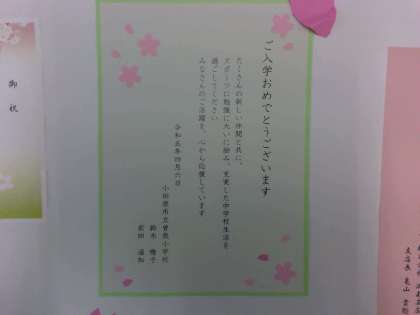 ご入学おめでとうございます
たくさんの新しい仲間と共に、
スポーツに勉強に大いに励み、充実した中学校生活を
過ごしてください
みなさんのご活躍を、心から応援しています
令和五年四月六日
小田原市立曽我小学校
鈴木
前田
御祝
支店長 亀山